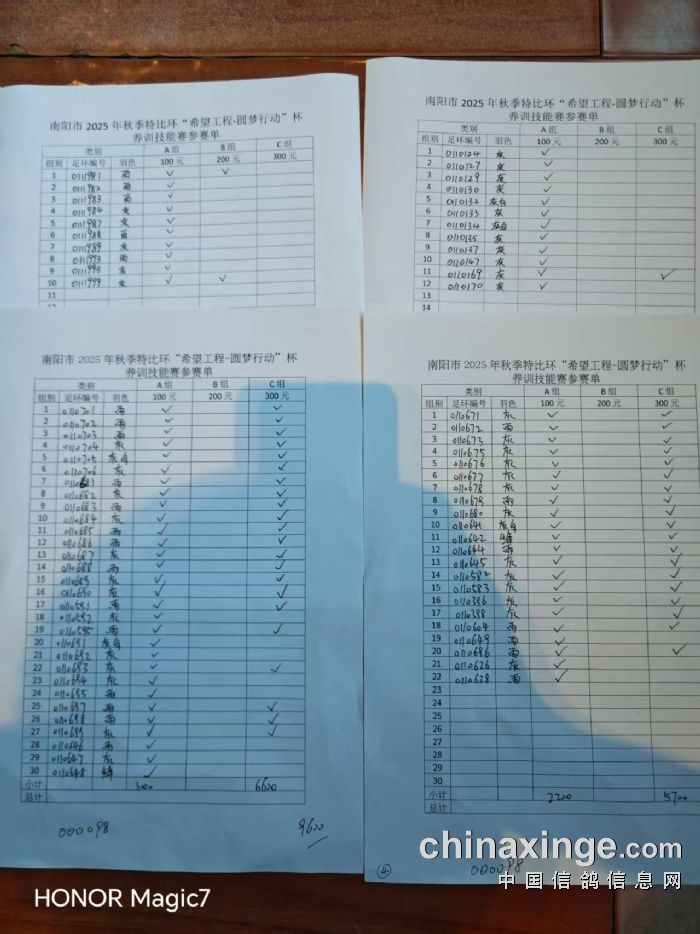 南阳市 2025 年秋季特比环“希望工程-圆梦行动”杯
养训技能赛参赛单
类别 A 组 B 组 C 组
组别 足环编号 羽色 100 元 200 元 300 元
1 0111981 雨 ✓ ✓
2 0111982 雨 ✓
3 0111983 雨 ✓
4 0111984 灰 ✓
5 0111987 灰 ✓
6 0111988 雨 ✓
7 0111989 灰 ✓
8 0111993 雨 ✓
9 0111995 灰 ✓
10 0111999 灰 ✓ ✓
11
南阳市 2025 年秋季特比环“希望工程-圆梦行动”杯
养训技能赛参赛单
类别 A 组 B 组 C 组
组别 足环编号 羽色 100 元 200 元 300 元
1 0110124 灰 ✓
2 0110127 灰 ✓
3 0110129 灰 ✓
4 0110130 灰 ✓
5 0110132 灰白 ✓
6 0110133 灰 ✓
7 0110134 灰白 ✓
8 0110135 灰 ✓
9 0110137 灰 ✓
10 0110147 灰 ✓
11 0110169 灰 ✓ ✓
12 0110170 灰 ✓
13
14
南阳市 2025 年秋季特比环“希望工程-圆梦行动”杯
养训技能赛参赛单
类别 A 组 B 组 C 组
组别 足环编号 羽色 100 元 200 元 300 元
1 0110701 雨 ✓ ✓
2 0110702 雨 ✓ ✓
3 0110703 雨 ✓ ✓
4 0110704 灰 ✓ ✓
5 0110705 灰白 ✓ ✓
6 0110706 灰 ✓ ✓
7 0110681 雨 ✓ ✓
8 0110682 灰 ✓ ✓
9 0110683 雨 ✓ ✓
10 0110684 灰 ✓ ✓
11 0110685 雨 ✓ ✓
12 0110686 雨 ✓ ✓
13 0110687 灰 ✓ ✓
14 0110688 雨 ✓ ✓
15 0110689 灰 ✓ ✓
16 0110690 灰 ✓ ✓
17 0110591 雨 ✓ ✓
18 0110592 灰 ✓
19 0110595 雨 ✓ ✓
20 0110691 灰白 ✓
21 0110692 灰 ✓
22 0110693 灰 ✓ ✓
23 0110694 灰 ✓
24 0110695 雨 ✓
25 0110697 雨 ✓ ✓
26 0110698 雨 ✓ ✓
27 0110699 灰 ✓ ✓
28 0110646 雨 ✓
29 0110647 灰 ✓
30 0110648 ✓
小计 3000 6600
总计
000098 9600
南阳市 2025 年秋季特比环“希望工程-圆梦行动”杯
养训技能赛参赛单
类别 A 组 B 组 C 组
组别 足环编号 羽色 100 元 200 元 300 元
1 0110671 灰 ✓ ✓
2 0110672 雨 ✓ ✓
3 0110673 灰 ✓ ✓
4 0110675 灰 ✓ ✓
5 0110676 灰 ✓ ✓
6 0110677 灰 ✓ ✓
7 0110678 灰 ✓ ✓
8 0110679 雨 ✓ ✓
9 0110680 灰 ✓ ✓
10 0110641 灰白 ✓ ✓
11 0110642 ✓ ✓
12 0110644 雨 ✓ ✓
13 0110645 灰 ✓ ✓
14 0110582 灰 ✓ ✓
15 0110583 灰 ✓ ✓
16 0110396 灰 ✓ ✓
17 0110398 灰 ✓ ✓
18 0110604 雨 ✓ ✓
19 0110649 雨 ✓
20 0110696 雨 ✓ ✓
21 0110626 灰 ✓
22 0110628 雨 ✓
23
24
25
26
27
28
29
30
小计 2200 5700
总计
④ 000098
chinaxinge.com
中国信鸽信息网
HONOR Magic7